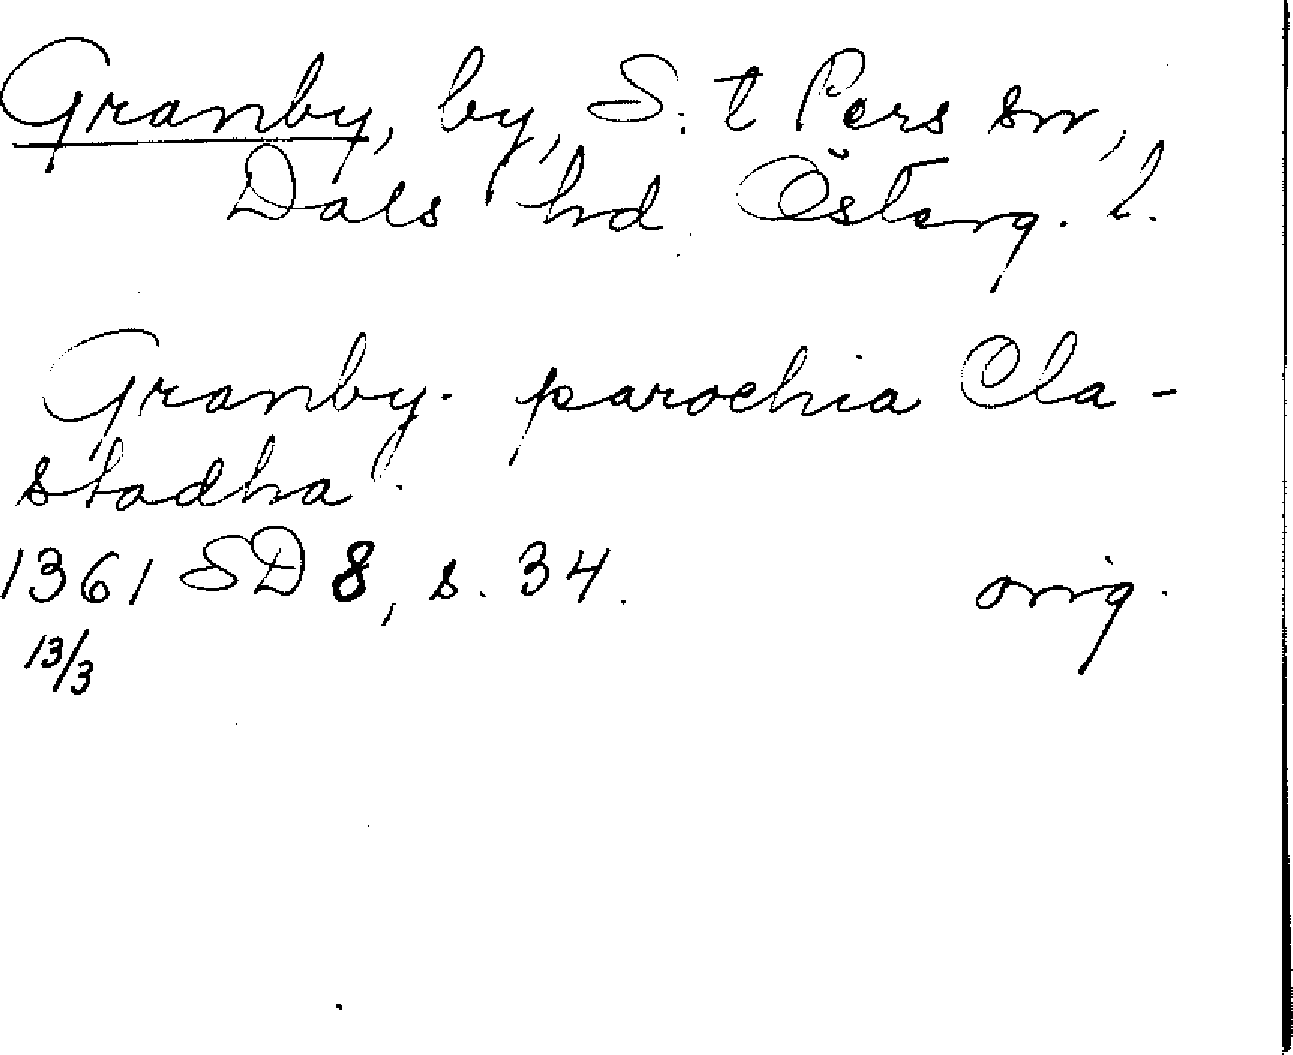 Granby, by, S:t Pers sn,
Dals hd Österg. l.
Granby. parochia Cla-
stadha.
1361 SD 8, s. 34. orig.
13/3